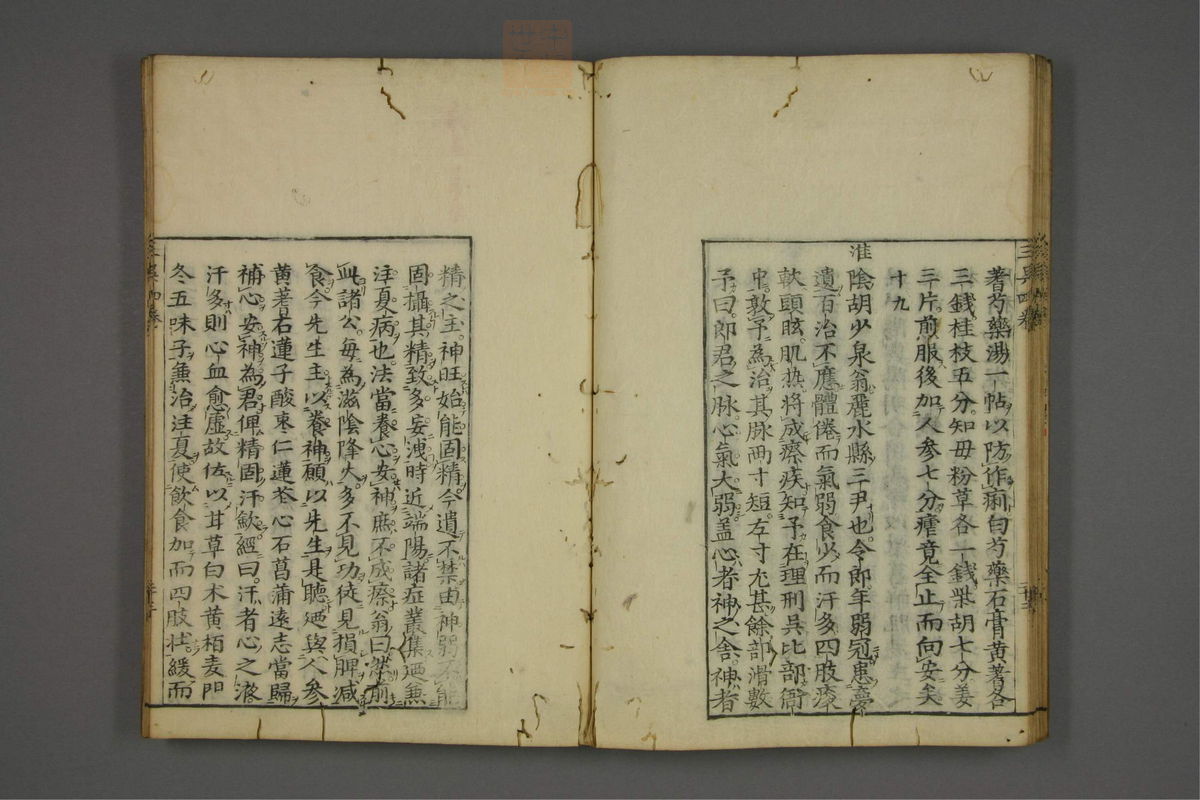 蓍芍藥湯一帖以防作痢白芍藥石膏黄蓍各
三錢桂枝五分知毋粉草各一錢柴胡七分姜
三片煎服後加人参七分瘧竟全止而向安矣
十九
淮陰胡少泉翁麗水縣三尹也令郎年弱冠患夢
遺百治不應體倦而氣弱食少而汗多四肢痿
軟頭眩肌热將成瘵疾知予在理刑吳比部衙
中敦予為治其脉両寸短左寸尤甚餘部滑數
予曰郎君之脉心氣大弱盖心者神之舎神者
精之主神旺始能固精今遺不禁由神弱不能
固攝其精致多妄洩時近端陽諸症叢集廼兼
注夏病也法當養心安神庶不成瘵翁曰然前
此諸公毎為滋陰降火多不見功徒見損脾减
食今先生主以養神願以先生是聴廼與人参
黄蓍石蓮子酸枣仁蓮芯心石菖蒲遠志當歸
補心安神為君俾精固汗歛經曰汗者心之液
汗多則心血愈虚故佐以甘草白术黄栢麦門
冬五味子兼治注夏使飲食加而四肢壮緩而